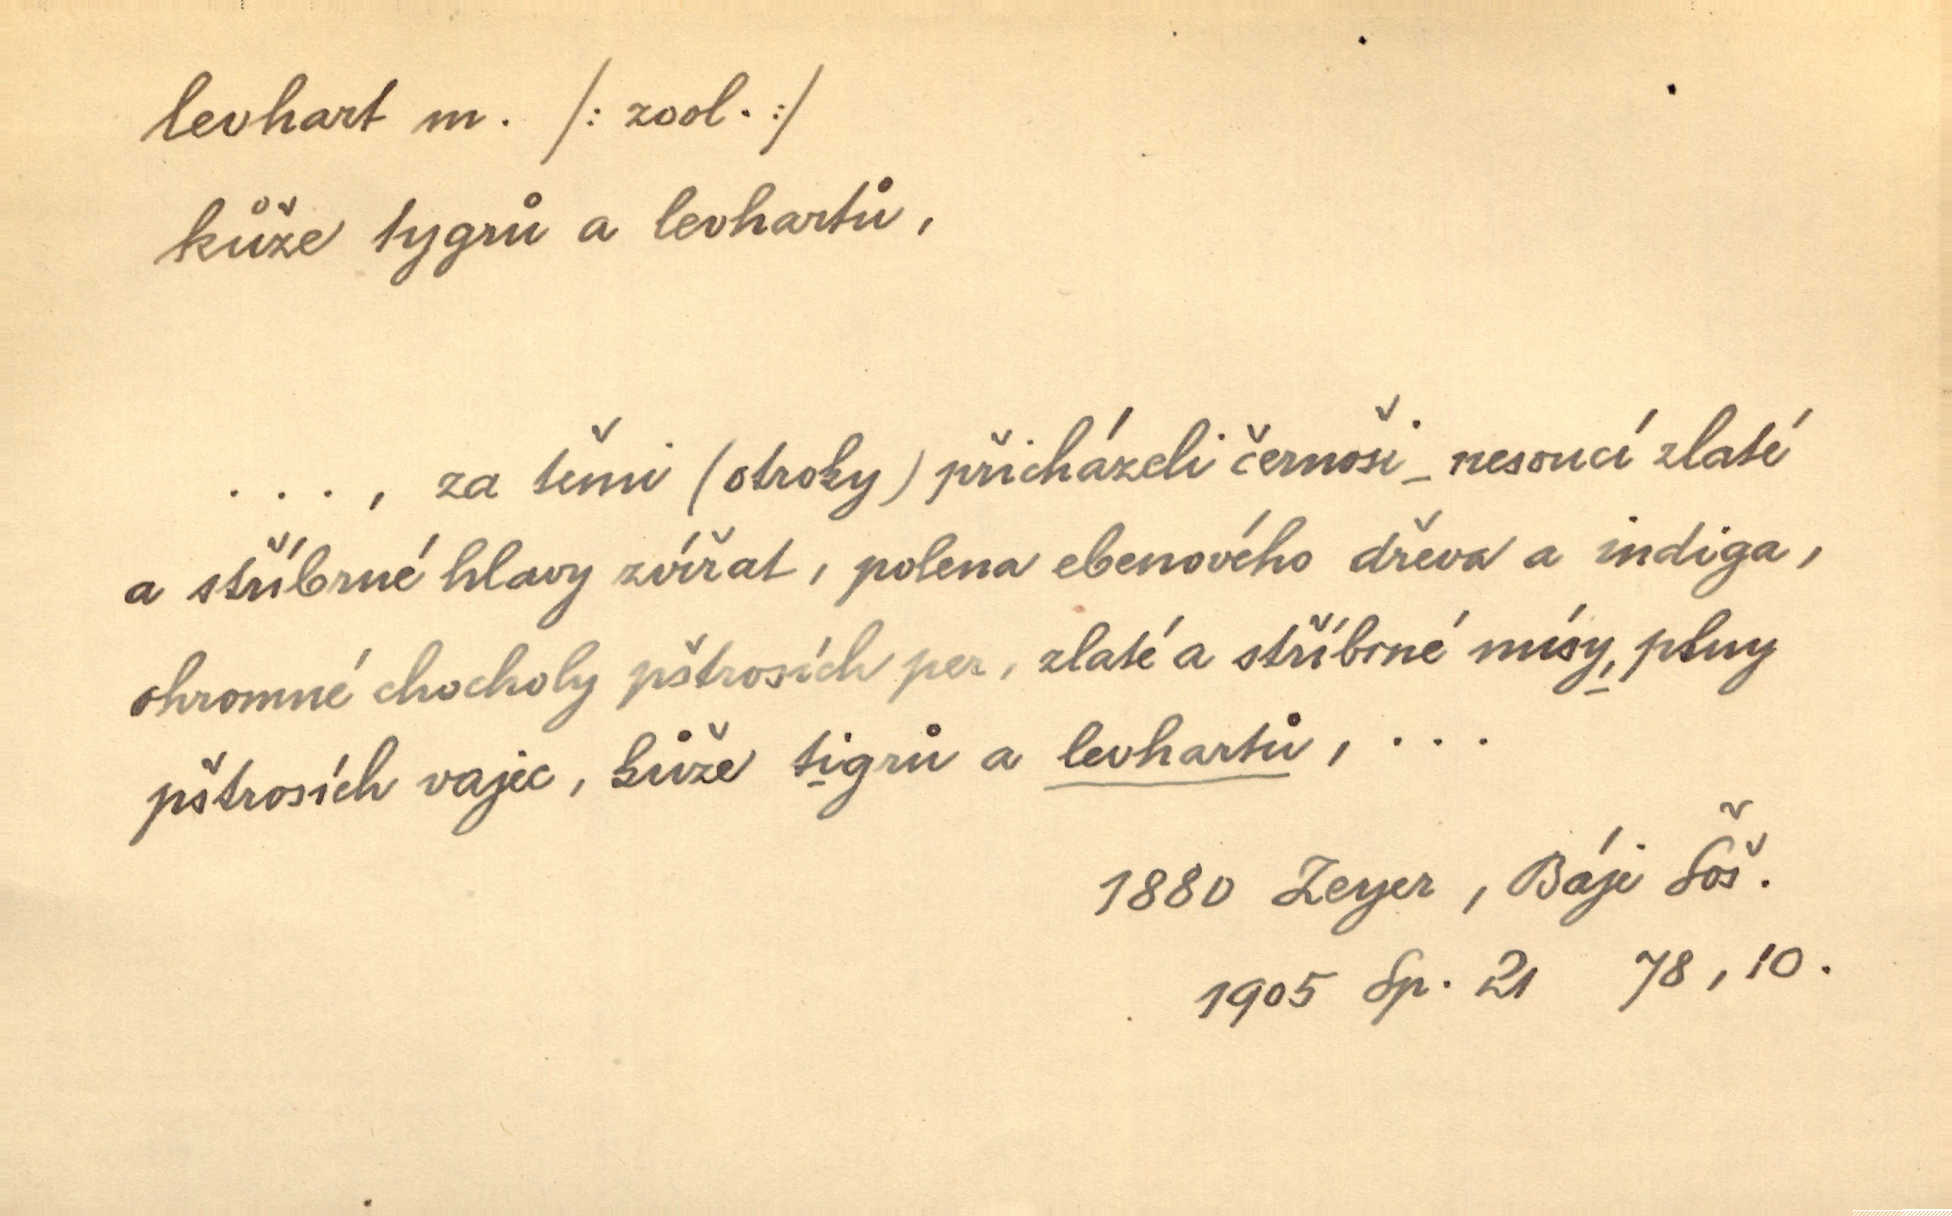 levhart m. /: zool. :/
kůže tygrů a levhartů,
. . . , za těmi (otroky) přicházeli černoši_ nesoucí zlaté
a stříbrné hlavy zvířat, polena ebenového dřeva a indiga,
ohromné chocholy pštrosích per, zlaté a stříbrné mísy, plny
pštrosích vajec, kůže tigrů a levhartů, . . .
1880 Zeyer, Báje Šoš.
1905 Sp. 21 78, 10.